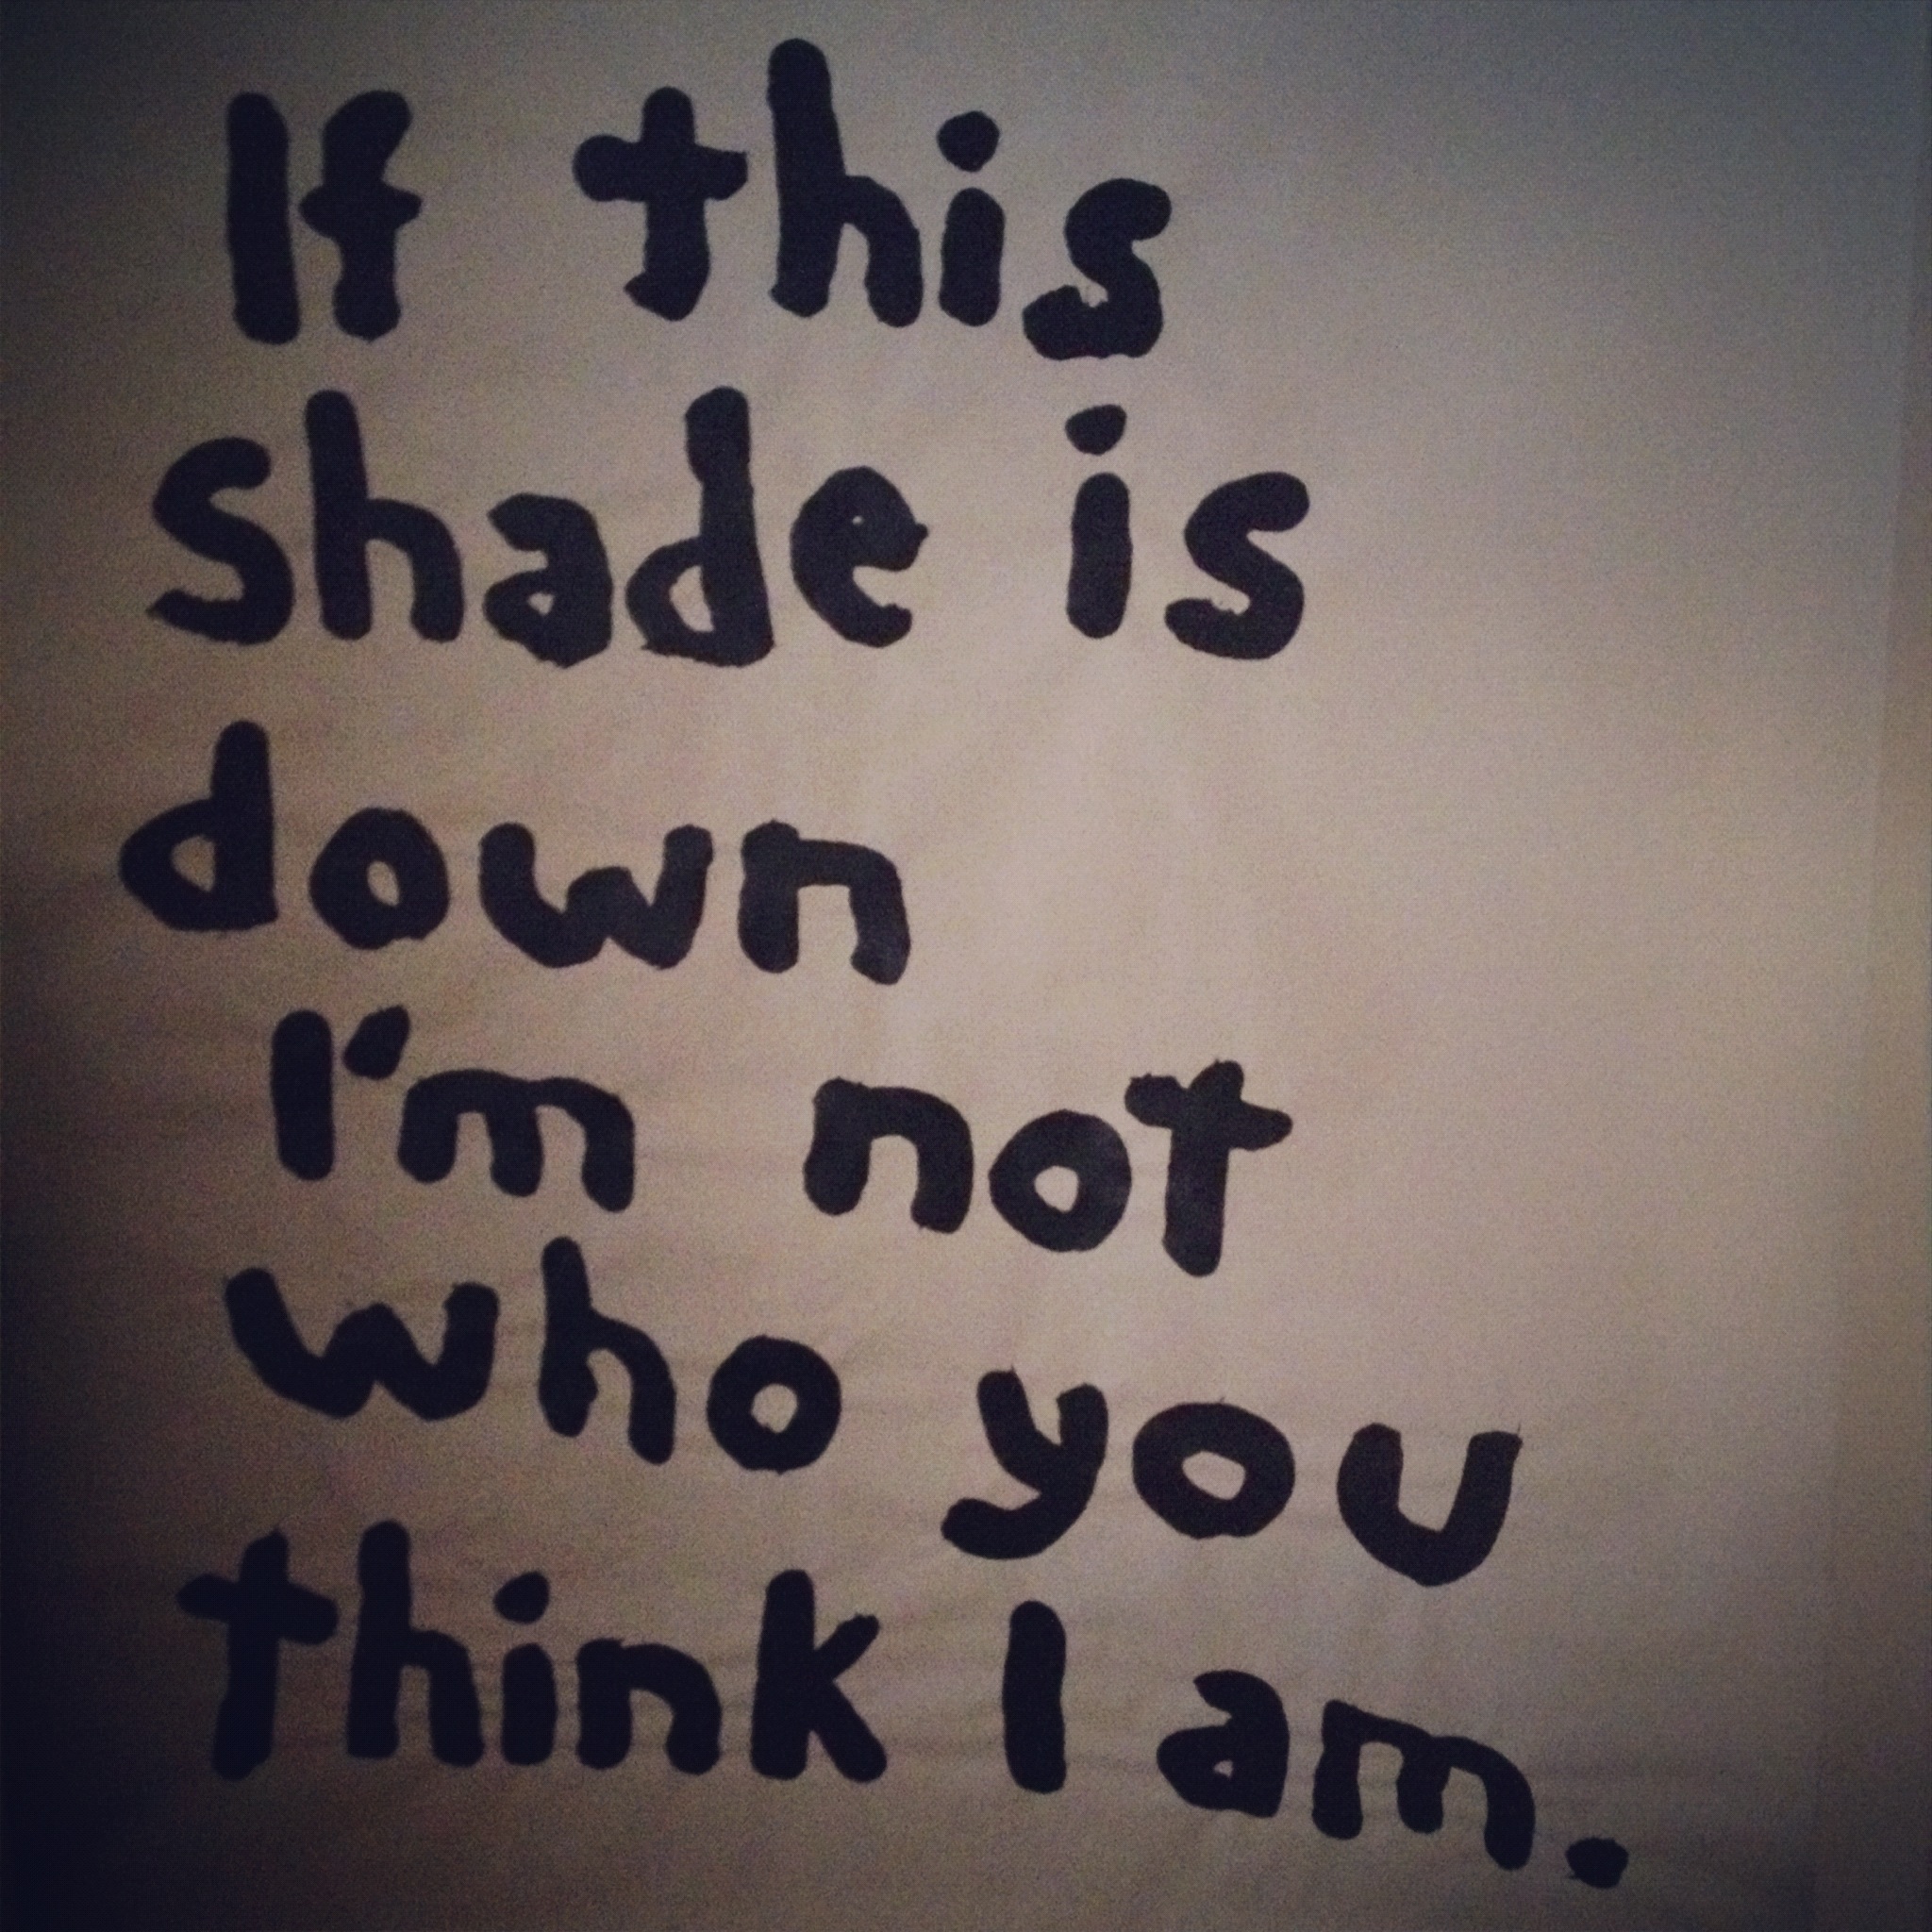 If this
shade is
down
I'm not
who you
think I am.